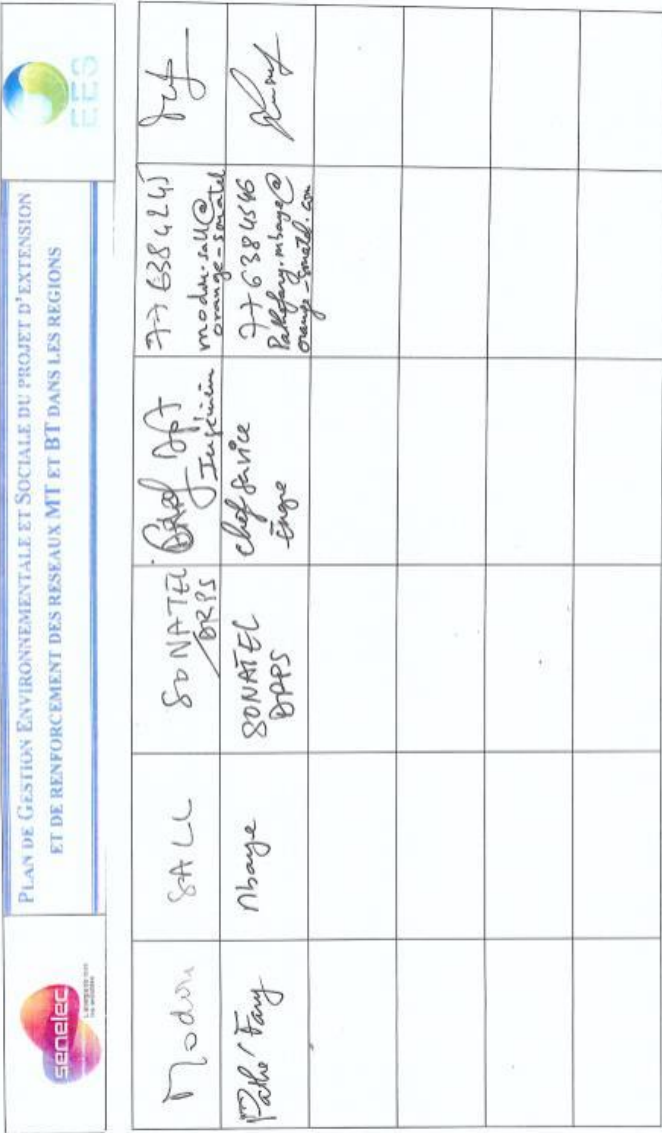 senelec
PLAN DE GESTION ENVIRONNEMENTALE ET SOCIALE DU PROJET D'EXTENSION
ET DE RENFORCEMENT DES RESEAUX MT ET BT DANS LES REGIONS
EES
Modou
SALL
SONATEL
DRPS
Dpt
Ingénierie
77 638 42 45
modou.sall@
orange-sonatel
Pathé Fany
Mbaye
SONATEL
DRPS
chef service
77 638 45 46
Pathefany.mbaye@
orange-sonatel.com